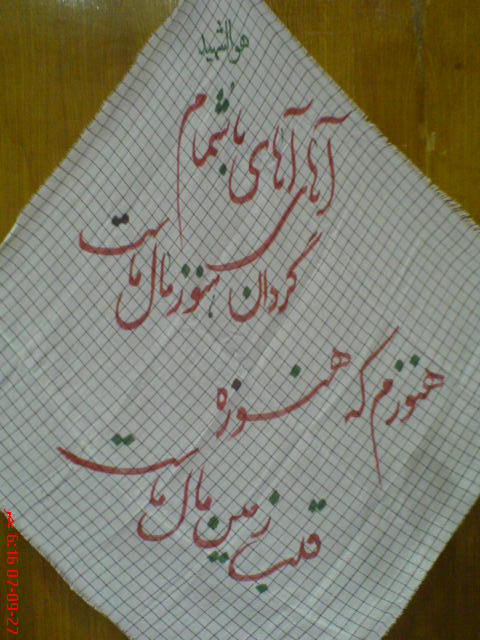 هو الشهید
آهای آهای با شمام
گردان هنوز مال ماست
هنوزم که هنوزه
قلب زمین مال ماست
6:15 07-09-27